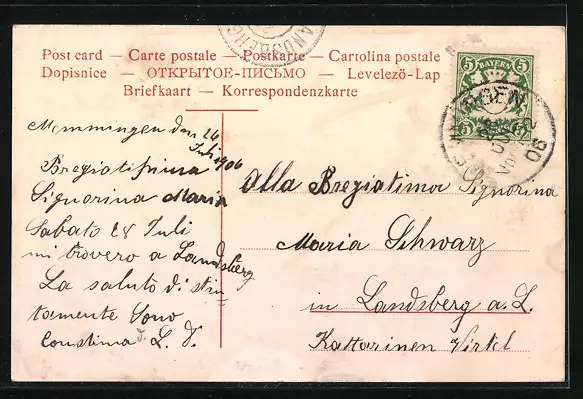 Post card — Carte postale — Postkarte — Cartolina postale
Dopisnice — ОТКРЫТОЕ-ПИСЬМО — Levelező-Lap
Briefkaart — Korrespondenzkarte
5 BAYERN 5
Memmingen den 24
Juli 1906
Bregiatissima
Signorina Maria
Sabato 28 Juli
mi trovero a Landsberg
La saluto distin
tamente Sono
L. V.
Alla Bregiatima Signorina
Maria Schwarz
in Landsberg a. L.
Kattarinen Virtel